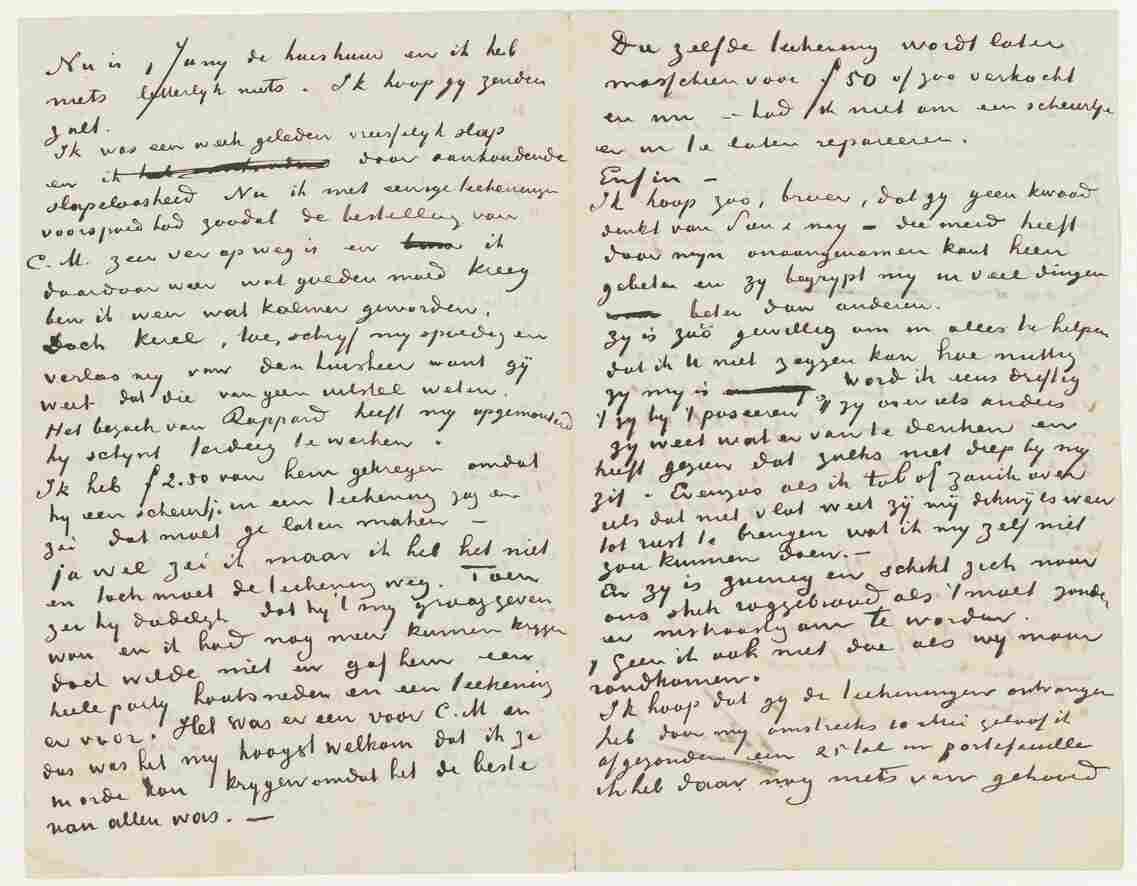 Nu is 1 Juny de huishuur en ik heb
niets letterlyk niets. Ik hoop gy zenden
zult.
Ik was een week geleden vreeselyk slap
en ik door aanhoudende
slapeloosheid Nu ik met eenige teekeningen
voorspoed had zoodat de bestelling van
C. M. zeer ver op weg is en ik
daardoor weer wat goeden moed kreeg
ben ik weer wat kalmer geworden.
Doch kerel, toe, schryf my spoedig en
verlos my van den huisheer want gÿ
weet dat die van geen uitstel weten.
Het bezoek van Rappard heeft my opgemonterd
hy schynt terdeeg te werken.
Ik heb f 2.50 van hem gekregen omdat
hy een scheurtje in een teekening zag en
zei dat moet ge laten maken —
ja wel zei ik maar ik heb het niet
en toch moet de teekening weg. Toen
zei hy dadelyk dat hy 't my graag geven
wou en ik had nog meer kunnen krygen
doch wilde niet en gaf hem een
heele party houtsneden en een teekening
er voor. Het was er een voor C. M en
dus was het my hoogst welkom dat ik ze
in orde kon krygen omdat het de beste
van allen was. —
Die zelfde teekening wordt later
misschien voor f 50 of zoo verkocht
en nu — had ik niet om een scheurtje
er in te laten repareeren.
Enfin —
Ik hoop zoo, broer, dat gy geen kwaad
denkt van Sien & my — die meid heeft
door myn onaangenamen kant heen
gebeten en zy begrypt my in veel dingen
beter dan anderen.
Zy is zoo gewillig om in alles te helpen
dat ik U niet zeggen kan hoe nuttig
zy my is Word ik eens driftig
't zy by 't poseeren 't zy over iets anders
zy weet wat er van te denken en
heeft gezien dat zulks niet diep by my
zit. Evenzoo als ik tob of zanik over
iets dat niet vlot weet zÿ mÿ dikwÿls weer
tot rust te brengen wat ik my zelf niet
zou kunnen doen. —
En zy is zuinig en schikt zich naar
ons stuk roggebrood als 't moet zonder
er mistroostig om te worden.
't Geen ik ook niet doe als wy maar
rondkomen.
Ik hoop dat gy de teekeningen ontvangen
heb door my omstreeks 20 Mei geloof ik
afgezonden een 25 tal in portefeuille
ik heb daar nog niets van gehoord